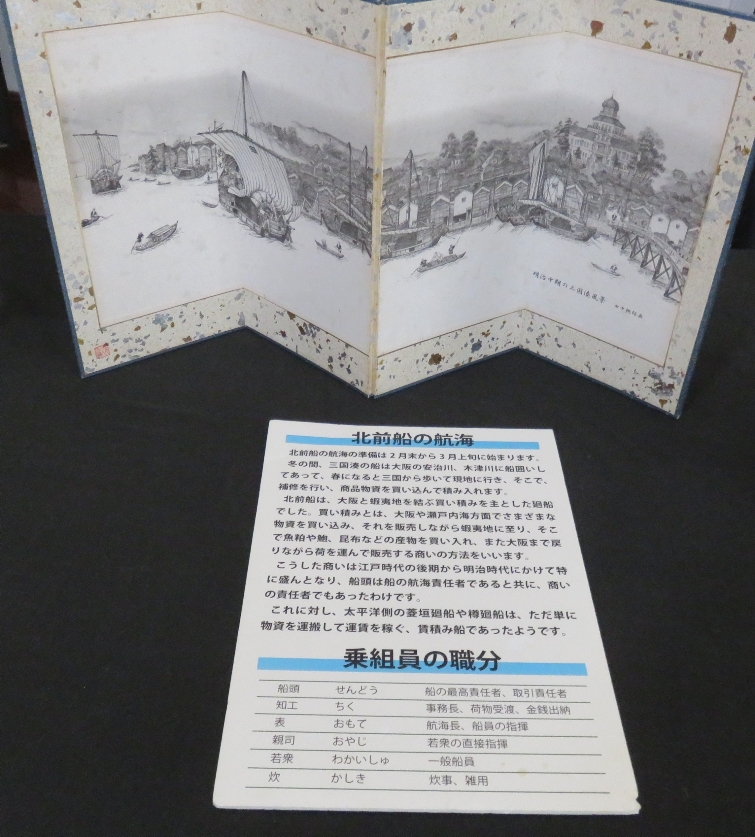 明治中期の三国湊風景
北前船の航海
北前船の航海の準備は2月末から3月上旬に始まります。
冬の間、三国湊の船は大阪の安治川、木津川に船囲いし
てあって、春になると三国から歩いて現地に行き、そこで、
補修を行い、商品物資を買い込んで積み入れます。
北前船は、大阪と蝦夷地を結ぶ買い積みを主とした廻船
でした。買い積みとは、大阪や瀬戸内海方面でさまざまな
物資を買い込み、それを販売しながら蝦夷地に至り、そこ
で魚粕や鮑、昆布などの産物を買い入れ、また大阪まで戻
りながら荷を運んで販売する商いの方法をいいます。
こうした商いは江戸時代の後期から明治時代にかけて特
に盛んとなり、船頭は船の航海責任者であると共に、商い
の責任者でもあったわけです。
これに対し、太平洋側の菱垣廻船や樽廻船は、ただ単に
物資を運搬して運賃を稼ぐ、賃積み船であったようです。
乗組員の職分
船頭 せんどう 船の最高責任者、取引責任者
知工 ちく 事務長、荷物受渡、金銭出納
表 おもて 航海長、船員の指揮
親司 おやじ 若衆の直接指揮
若衆 わかいしゅ 一般船員
炊 かしき 炊事、雑用